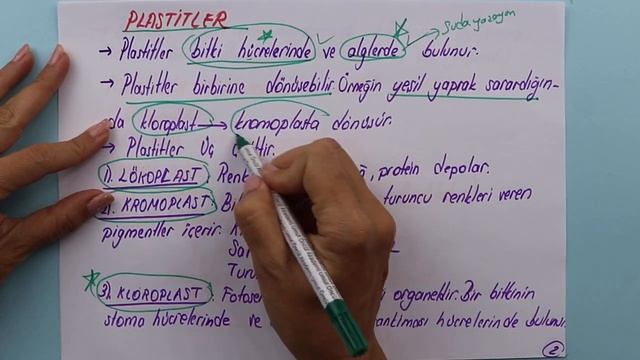 PLASTİTLER
suda yaşayan
→ Plastitler bitki hücrelerinde ve alglerde bulunur.
→ Plastitler birbirine dönüşebilir. Örneğin yeşil yaprak sarardığın-
da kloroplast → kromoplasta dönüşür.
→ Plastitler Üç
1). LÖKOPLAST: protein depolar.
2). KROMOPLAST: turuncu renkleri veren
pigmentler içerir.
3). KLOROPLAST: organeldir. Bir bitkinin
stoma hücrelerinde ve hücrelerinde bulunur.
2